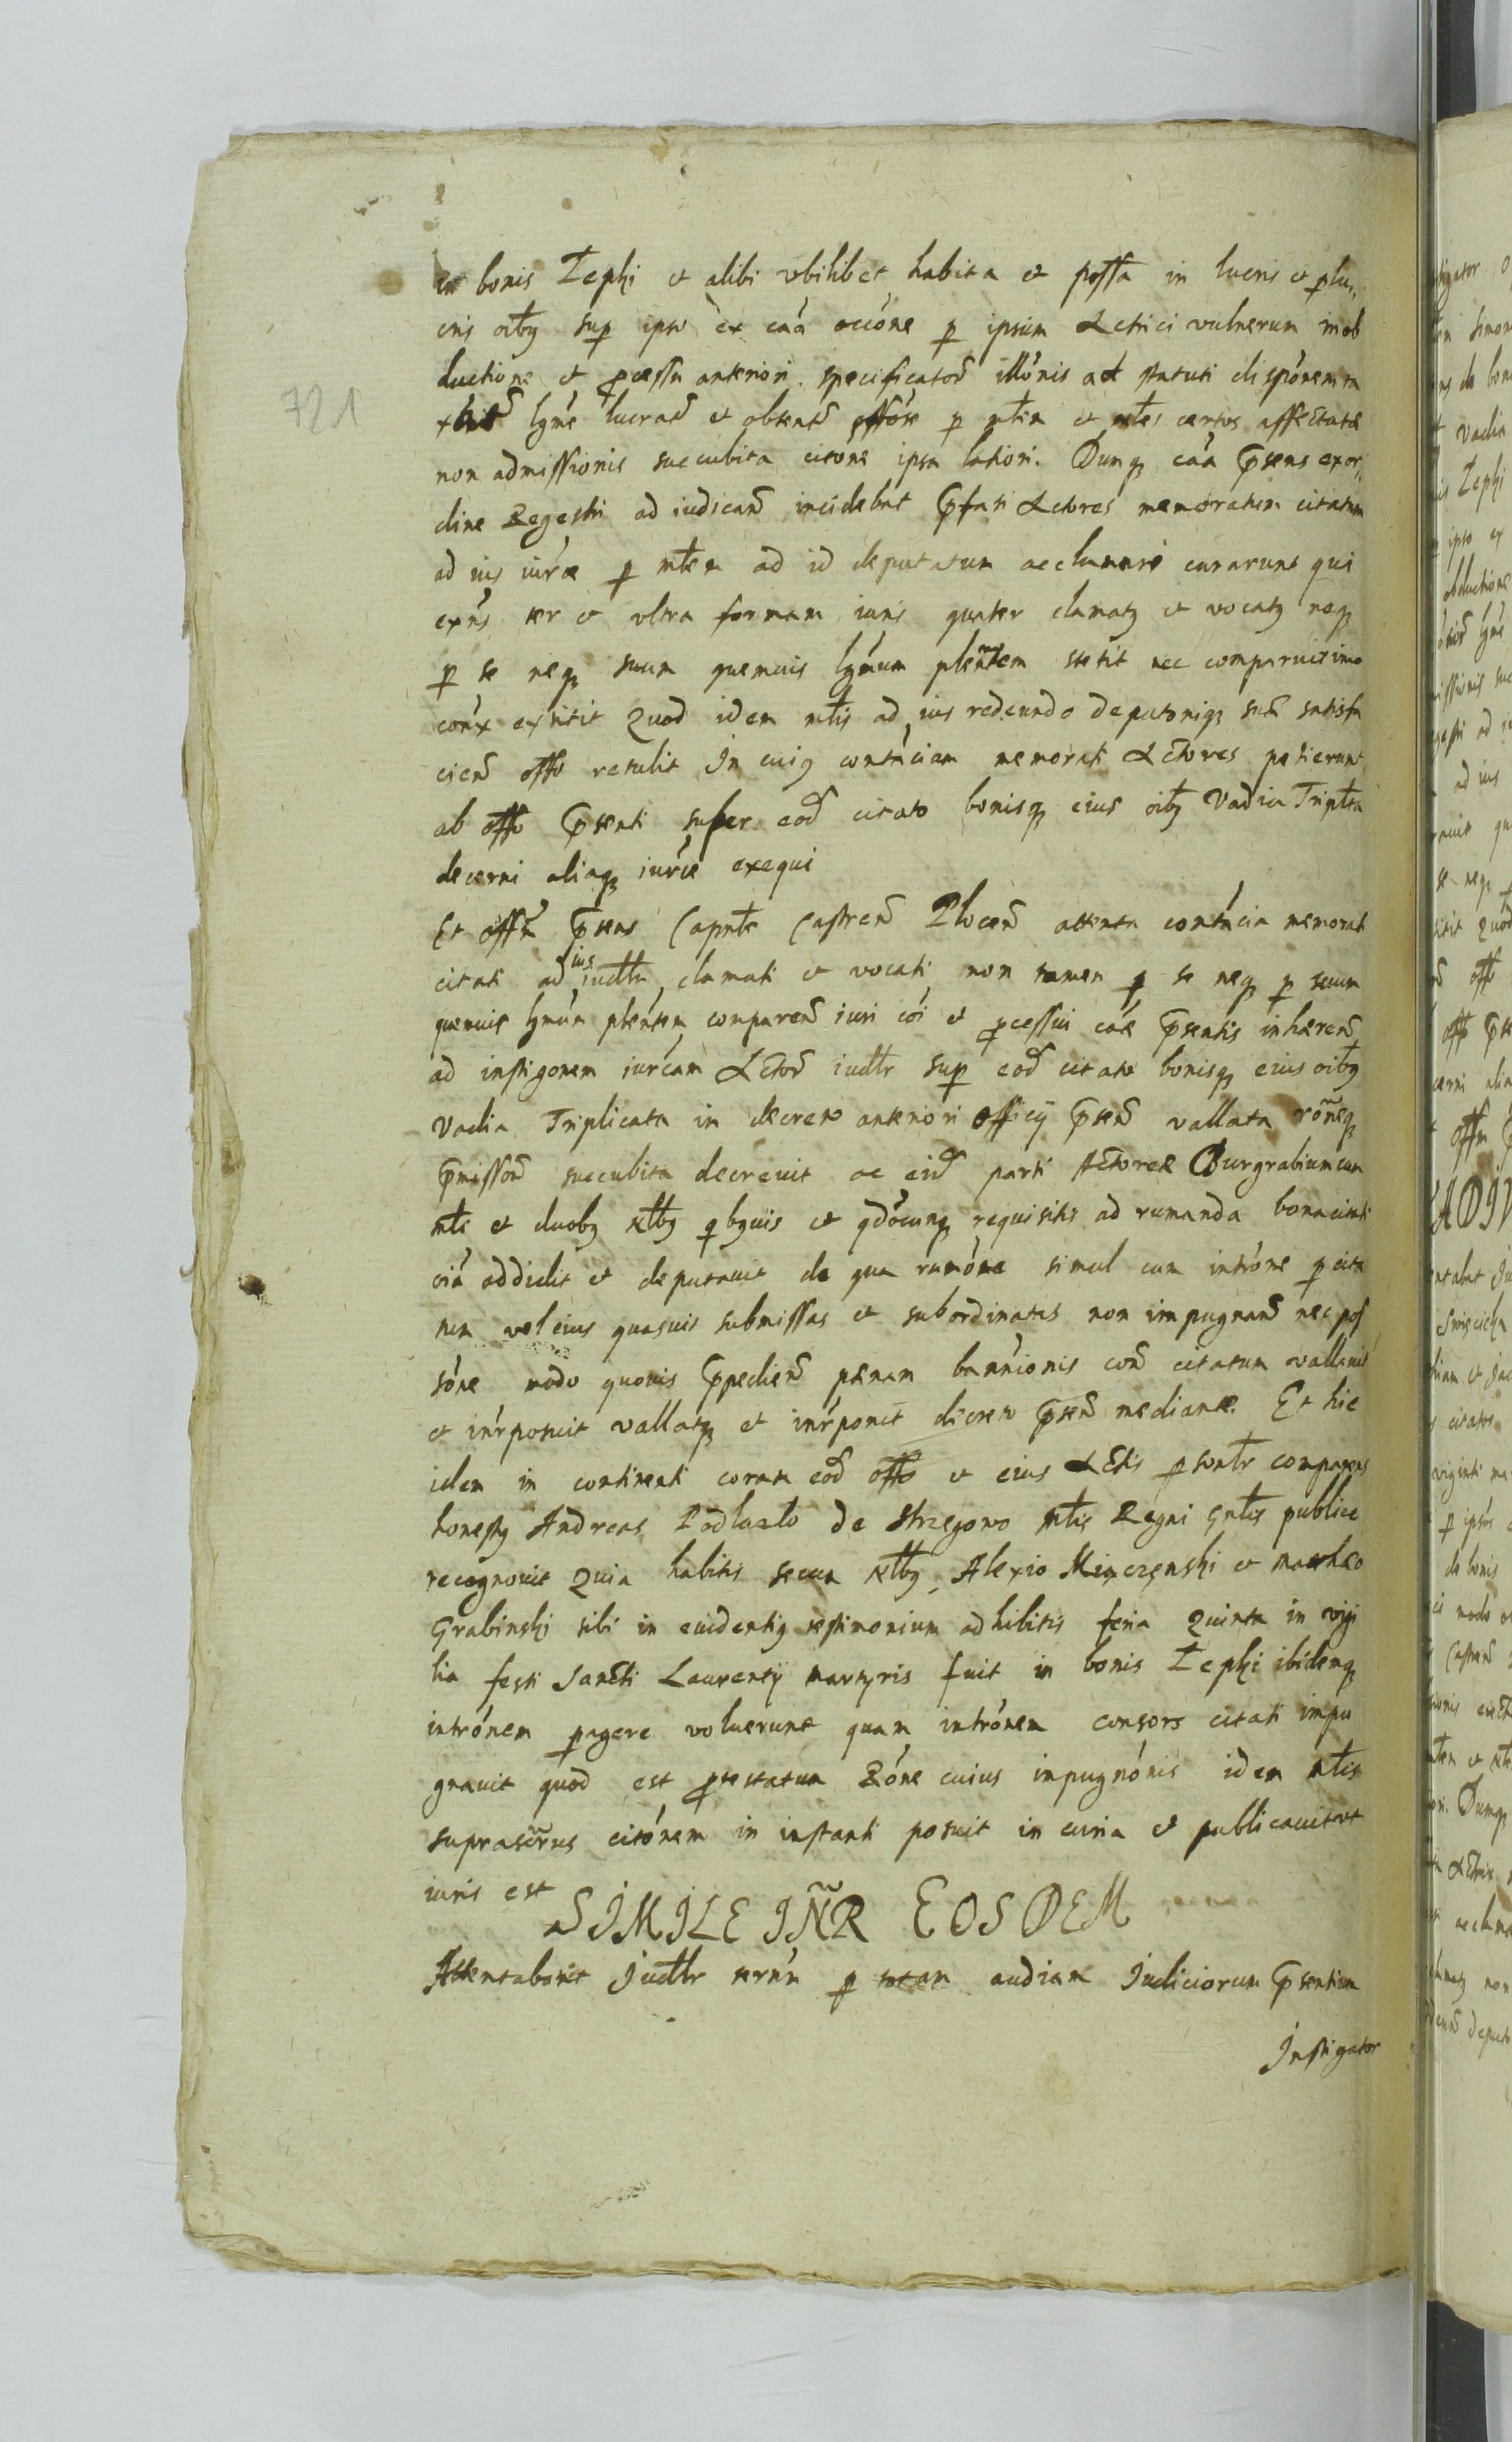 721
in bonis Łepki et alibi ubilibet habita et possa in lucris et plu
cris oibꝫ sup ipso ex caá occióne p ipsum Actrici vulnerum in ob
ductione et pcessu anteriori specificatoꝝ illónis ad statuti dispónem
lgmé lucraꝝ et obtentꝝ p mltm et nbles certos affectatæ
non admissionis succubita citóne ipsa latiori. Dumqꝫ caá psens ex or
dine Regestri ad iudicanꝝ incidebat pfati Actores memoratum citatum
ad ius iurće p mltem ad id deputatum acclamari curarunt qui
exńs ter et ultra formam iuris quater clamatꝰ et vocatꝰ neqꝫ
p se neqꝫ suum quemuis lgmúm plentem stetit nec comparuit imo
conx extitit Quod idem mltis ad ius redeundo deputoniqꝫ suæ satisfa
cienꝝ offo retulit In cuiꝰ contńciam memorati Actores petierunt
ab offo psenti super eoꝺ citato bonisqꝫ eius oibꝫ Vadia Triplta
decerni aliaqꝫ iurće exequi
Et offm psens Capnle Castrenꝝ Plocenꝝ attenta contńcia memorati
citati ad ius iudlr clamati et vocati non tamen p se neqꝫ p suum
quemuis lgmúm plentem comparenꝝ iuri iói et pcessui caæ psentis inhærenꝝ
ad instigonem iurćam Actoꝝ iudlr sup eoꝺ citato bonisqꝫ eius oibꝫ
Vadia Triplicata in decreto anteriori officij psenꝝ vallata rõneqꝫ
pmissoꝝ succubita decreuit ac eiꝺ parti Actoreæ Burgrabium cum
mlti et duobꝫ nbbꝫ qbꝰuis et qdócunqꝫ requisitis ad rumanda bona citati
oiá addidit et deputauit de qua rumóne simul cum intróne p cita
tum vel eius quasuis submissas et subordinatas non impugnanꝝ nec pos
sóne modo quouis ppedienꝝ pænam bannicionis conꝝ citatum vallauit
et inŕposuit vallatqꝫ et inŕponit decreto psenꝝ mediante. Et hic
idem in continenti coram eoꝺ offo et eius Actis psonlr comparens
honestꝰ Andreas Podlasło de Strzegowo mltis Regni gnlis publice
recognouit Quia habitis secum nbbꝫ Alexio Miączęnski et Mathæo
Grabinski sibi in euidentiꝰ testimonium adhibitis feria Quinta in vigi
lia festi Sancti Laurentij martyris fuit in bonis Łepki ibidemqꝫ
intrónem pagere voluerunt quam intrónem consors citati impu
gnauit quod est ptestatum Róne cuius impugnónis idem mltis
suprascrus citónem in instanti posuit in curia et publicauit ut
iuris est
SIMILE IÑR EOSDEM
Attentabant iudlr termń p totam audiam Iudiciorum psentium
Instigator